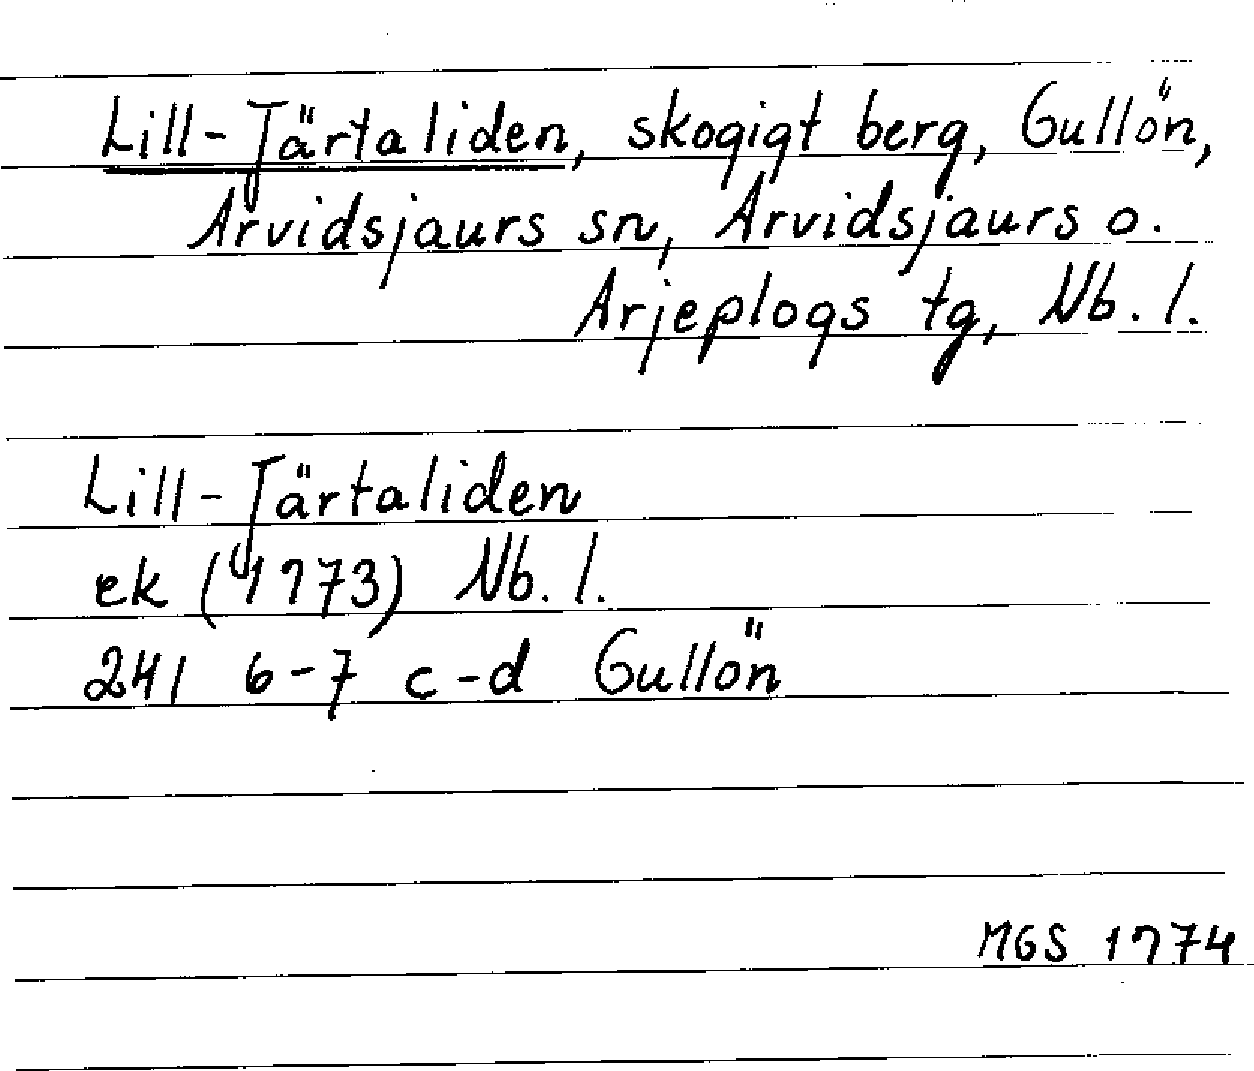 Lill-Järtaliden, skogigt berg, Gullön,
Arvidsjaurs sn, Arvidsjaurs o.
Arjeplogs tg, Nb. l.
Lill-Järtaliden
ek (1973) Nb. l.
24I 6-7 c-d Gullön
MGS 1974